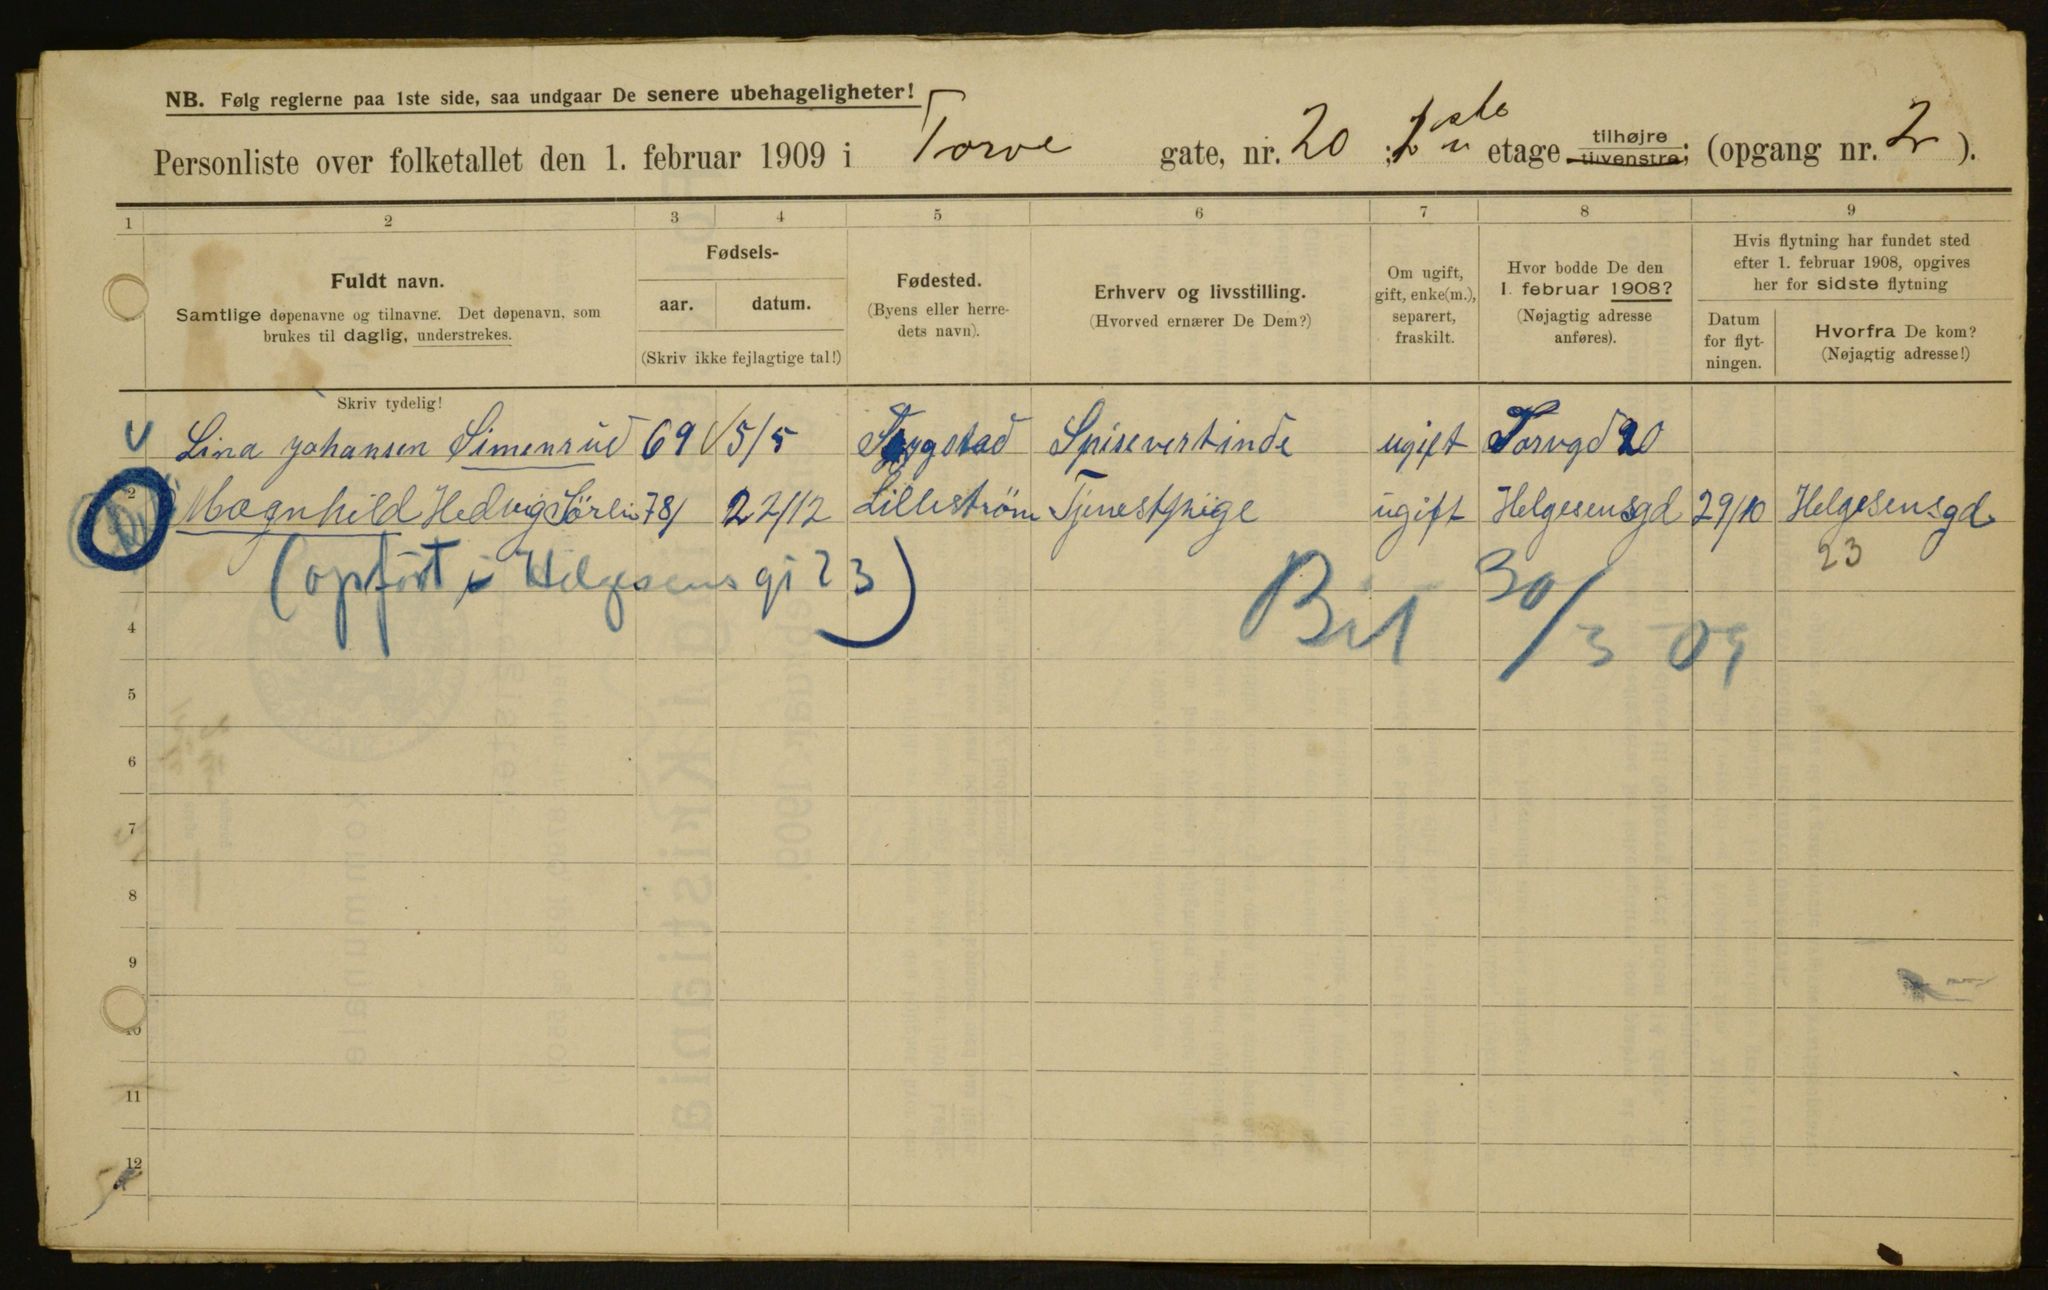 NB. Følg reglerne paa 1ste side, saa undgaar De senere ubehageligheter!
Personliste over folketallet den 1. februar 1909 i Torve gate, nr. 20 ; etage tilhøjre tilvenstre; (opgang nr. 2 ).
1 2 3 4 5 6 7 8 9
Fuldt navn.
Samtlige døpenavne og tilnavne. Det døpenavn, som
brukes til daglig, understrekes.
Fødsels-
aar. datum.
(Skriv ikke fejlagtige tal!)
Fødested.
(Byens eller herre-
dets navn).
Erhverv og livsstilling.
(Hvorved ernærer De Dem?)
Om ugift,
gift, enke(m.),
separert,
fraskilt.
Hvor bodde De den
1. februar 1908?
(Nøjagtig adresse
anføres).
Hvis flytning har fundet sted
efter 1. februar 1908, opgives
her for sidste flytning
Datum
for flyt-
ningen.
Hvorfra De kom?
(Nøjagtig adresse!)
Skriv tydelig!
Lina Johansen Simensrud 69 5/5 Spisevertinde ugift Torvgd 20
2 Magnhild Hedvig Sørlie 78 22/12 Lilleström Tjenestpige ugift Helgesensgd 29/10 Helgesensgd
23
(opført i Helgesens gt 23)
30/3 09
4
5
6
7
8
9
10
11
12